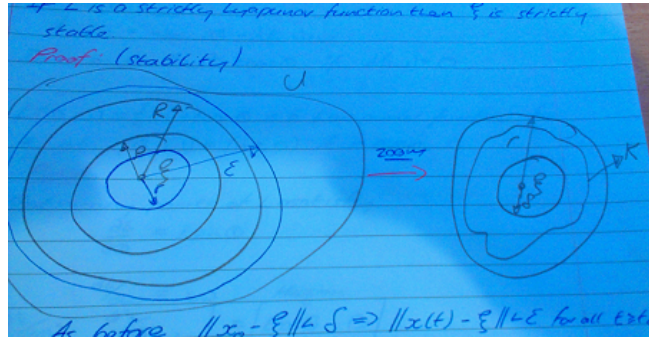 If L is a strictly Lyapunov function then ξ is strictly
stable.
Proof: (stability)
U
R
ρ
ξ
ε
r
zoom
r
K
ξ
δ
As before ||x₀ - ξ|| < δ => ||x(t) - ξ|| < ε for all t≥t₀